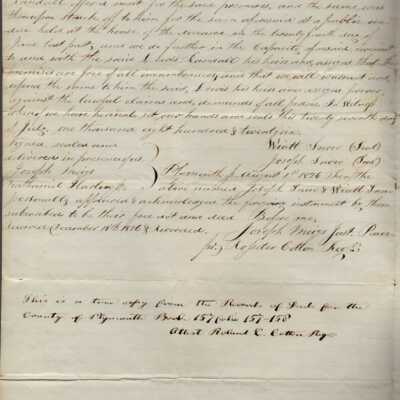 Randall offered most for the same premises, and the same was
thereupon struck off to him for the sum aforesaid at a public ven-
due held at the house of the on the twenty fourth day of
June last past, and we do further in the capacity aforesaid covenant
to and with the said Lewis Randall his heirs and assigns that the
premises are free of all incumbrances, and that we will warrant and
defend the same to him the said Lewis his heirs and assigns forever
against the lawful claims and demands of all persons In Witness
whereof we have hereunto set our hands and seals this twenty seventh day
of July, one thousand eight hundred & twenty six.
Signed sealed and
delivered in presence of us
Joseph Meigs
Nathaniel
Wyatt Snow (Seal)
Joseph Snow (Seal)
Plymouth ss August 1st 1826 Then the
above named Joseph Snow & Wyatt Snow
personally appeared & acknowledged the foregoing instrument by them
subscribed to be their free act and deed Before me,
Joseph Meigs Just. Peace
Received December 18th 1826 & Recorded,
pr. Rossiter Cotton Regr.
This is a true copy from the Records of Deeds for the
County of Plymouth Book 157 folio 157-158
Attest Roland C. Cotton Regr